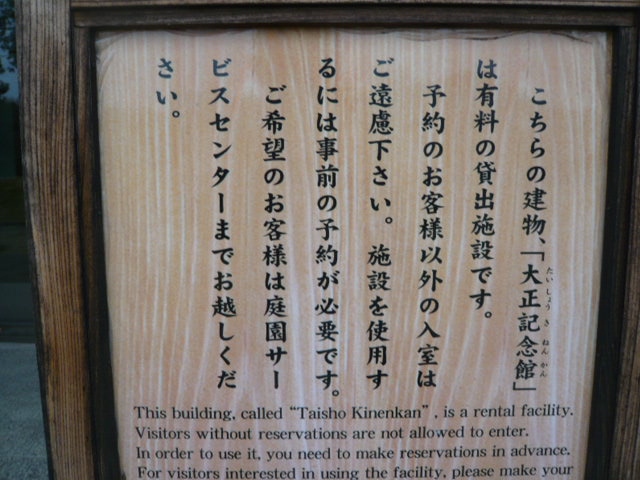 こちらの建物、「大正記念館」
たいしょう き ねん かん
は有料の貸出施設です。
予約のお客様以外の入室は
ご遠慮下さい。施設を使用す
るには事前の予約が必要です。
ご希望のお客様は庭園サー
ビスセンターまでお越しくだ
さい。
This building, called “Taisho Kinenkan”, is a rental facility.
Visitors without reservations are not allowed to enter.
In order to use it, you need to make reservations in advance.
For visitors interested in using the facility, please make your